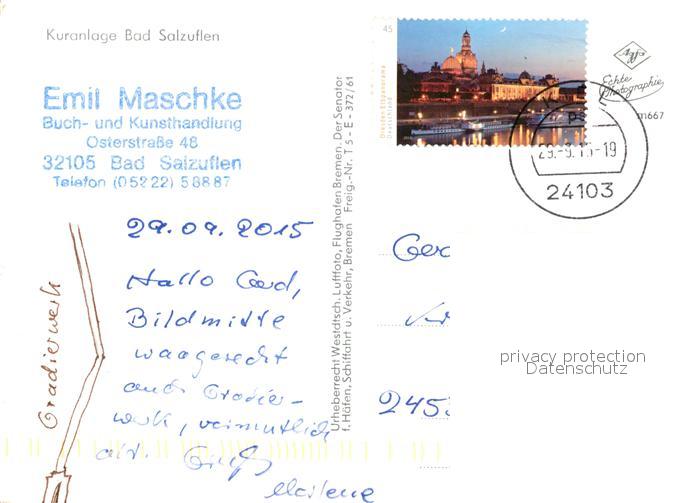 Kuranlage Bad Salzuflen
Emil Maschke
Buch- und Kunsthandlung
Osterstraße 48
32105 Bad Salzuflen
Telefon (05222) 58887
29.09.2015
Hallo Gerd,
Bildmitte
waagerecht
Gradier-
werk, vermutlich
Marlene
Gradierwerk
Urheberrecht Westdtsch. Luftfoto, Flughafen Bremen. Der Senator
f. Häfen, Schiffahrt u. Verkehr, Bremen Freig.-Nr. T 5 - E - 372/61
45
Dresden Elbpanorama
Deutschland
Agfa
Echte
Photographie
m667
29.-9.15-19
24103
Ger
245
privacy protection
Datenschutz